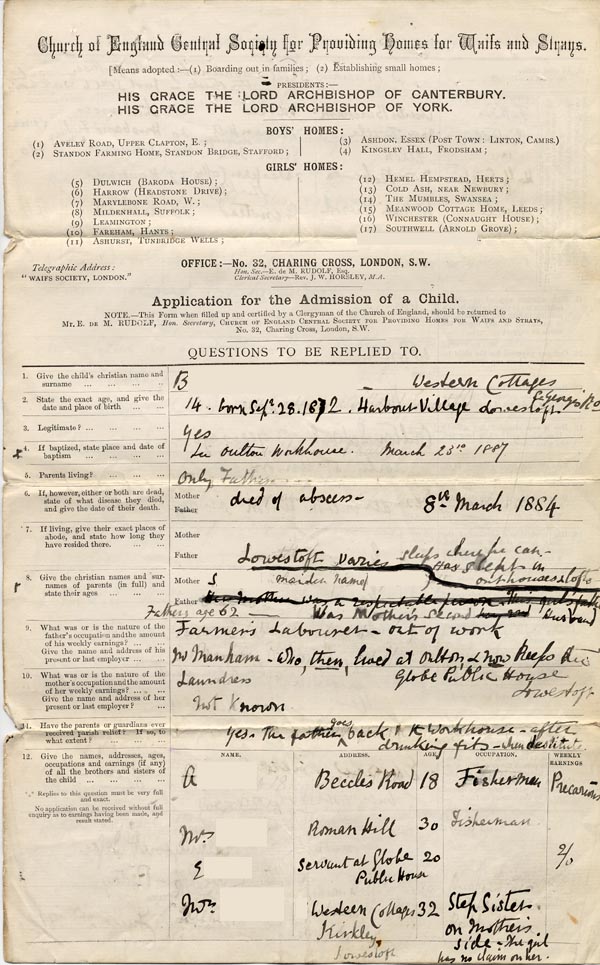 Church of England Central Society for Providing Homes for Waifs and Strays.
[Means adopted:—(1) Boarding out in families; (2) Establishing small homes;
PRESIDENTS:—
HIS GRACE THE LORD ARCHBISHOP OF CANTERBURY.
HIS GRACE THE LORD ARCHBISHOP OF YORK.
BOYS' HOMES:
(1) AVELEY ROAD, UPPER CLAPTON, E.;
(2) STANDON FARMING HOME, STANDON BRIDGE, STAFFORD;
(3) ASHDON, ESSEX (POST TOWN: LINTON, CAMBS.)
(4) KINGSLEY HALL, FRODSHAM;
GIRLS' HOMES:
(5) DULWICH (BARODA HOUSE);
(6) HARROW (HEADSTONE DRIVE);
(7) MARYLEBONE ROAD, W.;
(8) MILDENHALL, SUFFOLK;
(9) LEAMINGTON;
(10) FAREHAM, HANTS;
(11) ASHURST, TUNBRIDGE WELLS;
(12) HEMEL HEMPSTEAD, HERTS;
(13) COLD ASH, NEAR NEWBURY;
(14) THE MUMBLES, SWANSEA;
(15) MEANWOOD COTTAGE HOME, LEEDS;
(16) WINCHESTER (CONNAUGHT HOUSE);
(17) SOUTHWELL (ARNOLD GROVE);
Telegraphic Address:
"WAIFS SOCIETY, LONDON."
OFFICE:—No. 32, CHARING CROSS, LONDON, S.W.
Hon. Sec.—E. de M. RUDOLF, Esq.
Clerical Secretary—Rev. J. W. HORSLEY, M.A.
Application for the Admission of a Child.
NOTE.—This Form when filled up and certified by a Clergyman of the Church of England, should be returned to
Mr. E. DE M. RUDOLF, Hon. Secretary, CHURCH OF ENGLAND CENTRAL SOCIETY FOR PROVIDING HOMES FOR WAIFS AND STRAYS,
No. 32, Charing Cross, London, S.W.
QUESTIONS TO BE REPLIED TO.
1. Give the child's christian name and surname
B Western Cottages
St George's Rd
2. State the exact age, and give the date and place of birth
14. born Sept. 28. 1872. Harbour Village Lowestoft
3. Legitimate?
Yes
4. If baptized, state place and date of baptism
In Oulton Workhouse. March 23rd 1887
5. Parents living?
Only Father
6. If, however, either or both are dead, state of what disease they died, and give the date of their death.
Mother died of abscess— 8th March 1884
Father
7. If living, give their exact places of abode, and state how long they have resided there.
Mother
Father Lowestoft varies sleeps where he can—
Has slept in
outhouses & lofts
8. Give the christian names and surnames of parents (in full) and state their ages
Mother S maiden name
Father
Fathers age 62 — Was Mothers second Husband
9. What was or is the nature of the father's occupation and the amount of his weekly earnings?
Give the name and address of his present or last employer
Farmer's Labourer — out of work
Mr Manham — who, then, lived at Oulton & now Keeps the
Globe Public House
Lowestoft
10. What was or is the nature of the mother's occupation and the amount of her weekly earnings?
Give the name and address of her present or last employer?
Laundress
Not Known
11. Have the parents or guardians ever received parish relief? If so, to what extent?
Yes. The father goes back to the Workhouse — after
drinking fits — when destitute.
12. Give the names, addresses, ages, occupations and earnings (if any) of all the brothers and sisters of the child
Replies to this question must be very full and exact.
No application can be received without full enquiry as to earnings having been made, and result stated.
NAME. ADDRESS. AGE OCCUPATION. WEEKLY EARNINGS
A Beccles Road 18 Fisherman Precarious
Mrs. Roman Hill 30 Fisherman
E Servant at Globe Public House 20 2/0
Mrs. Western Cottages Kirkley Lowestoft 32 Step Sisters
on Mothers
side — The girl
has no claim on her.